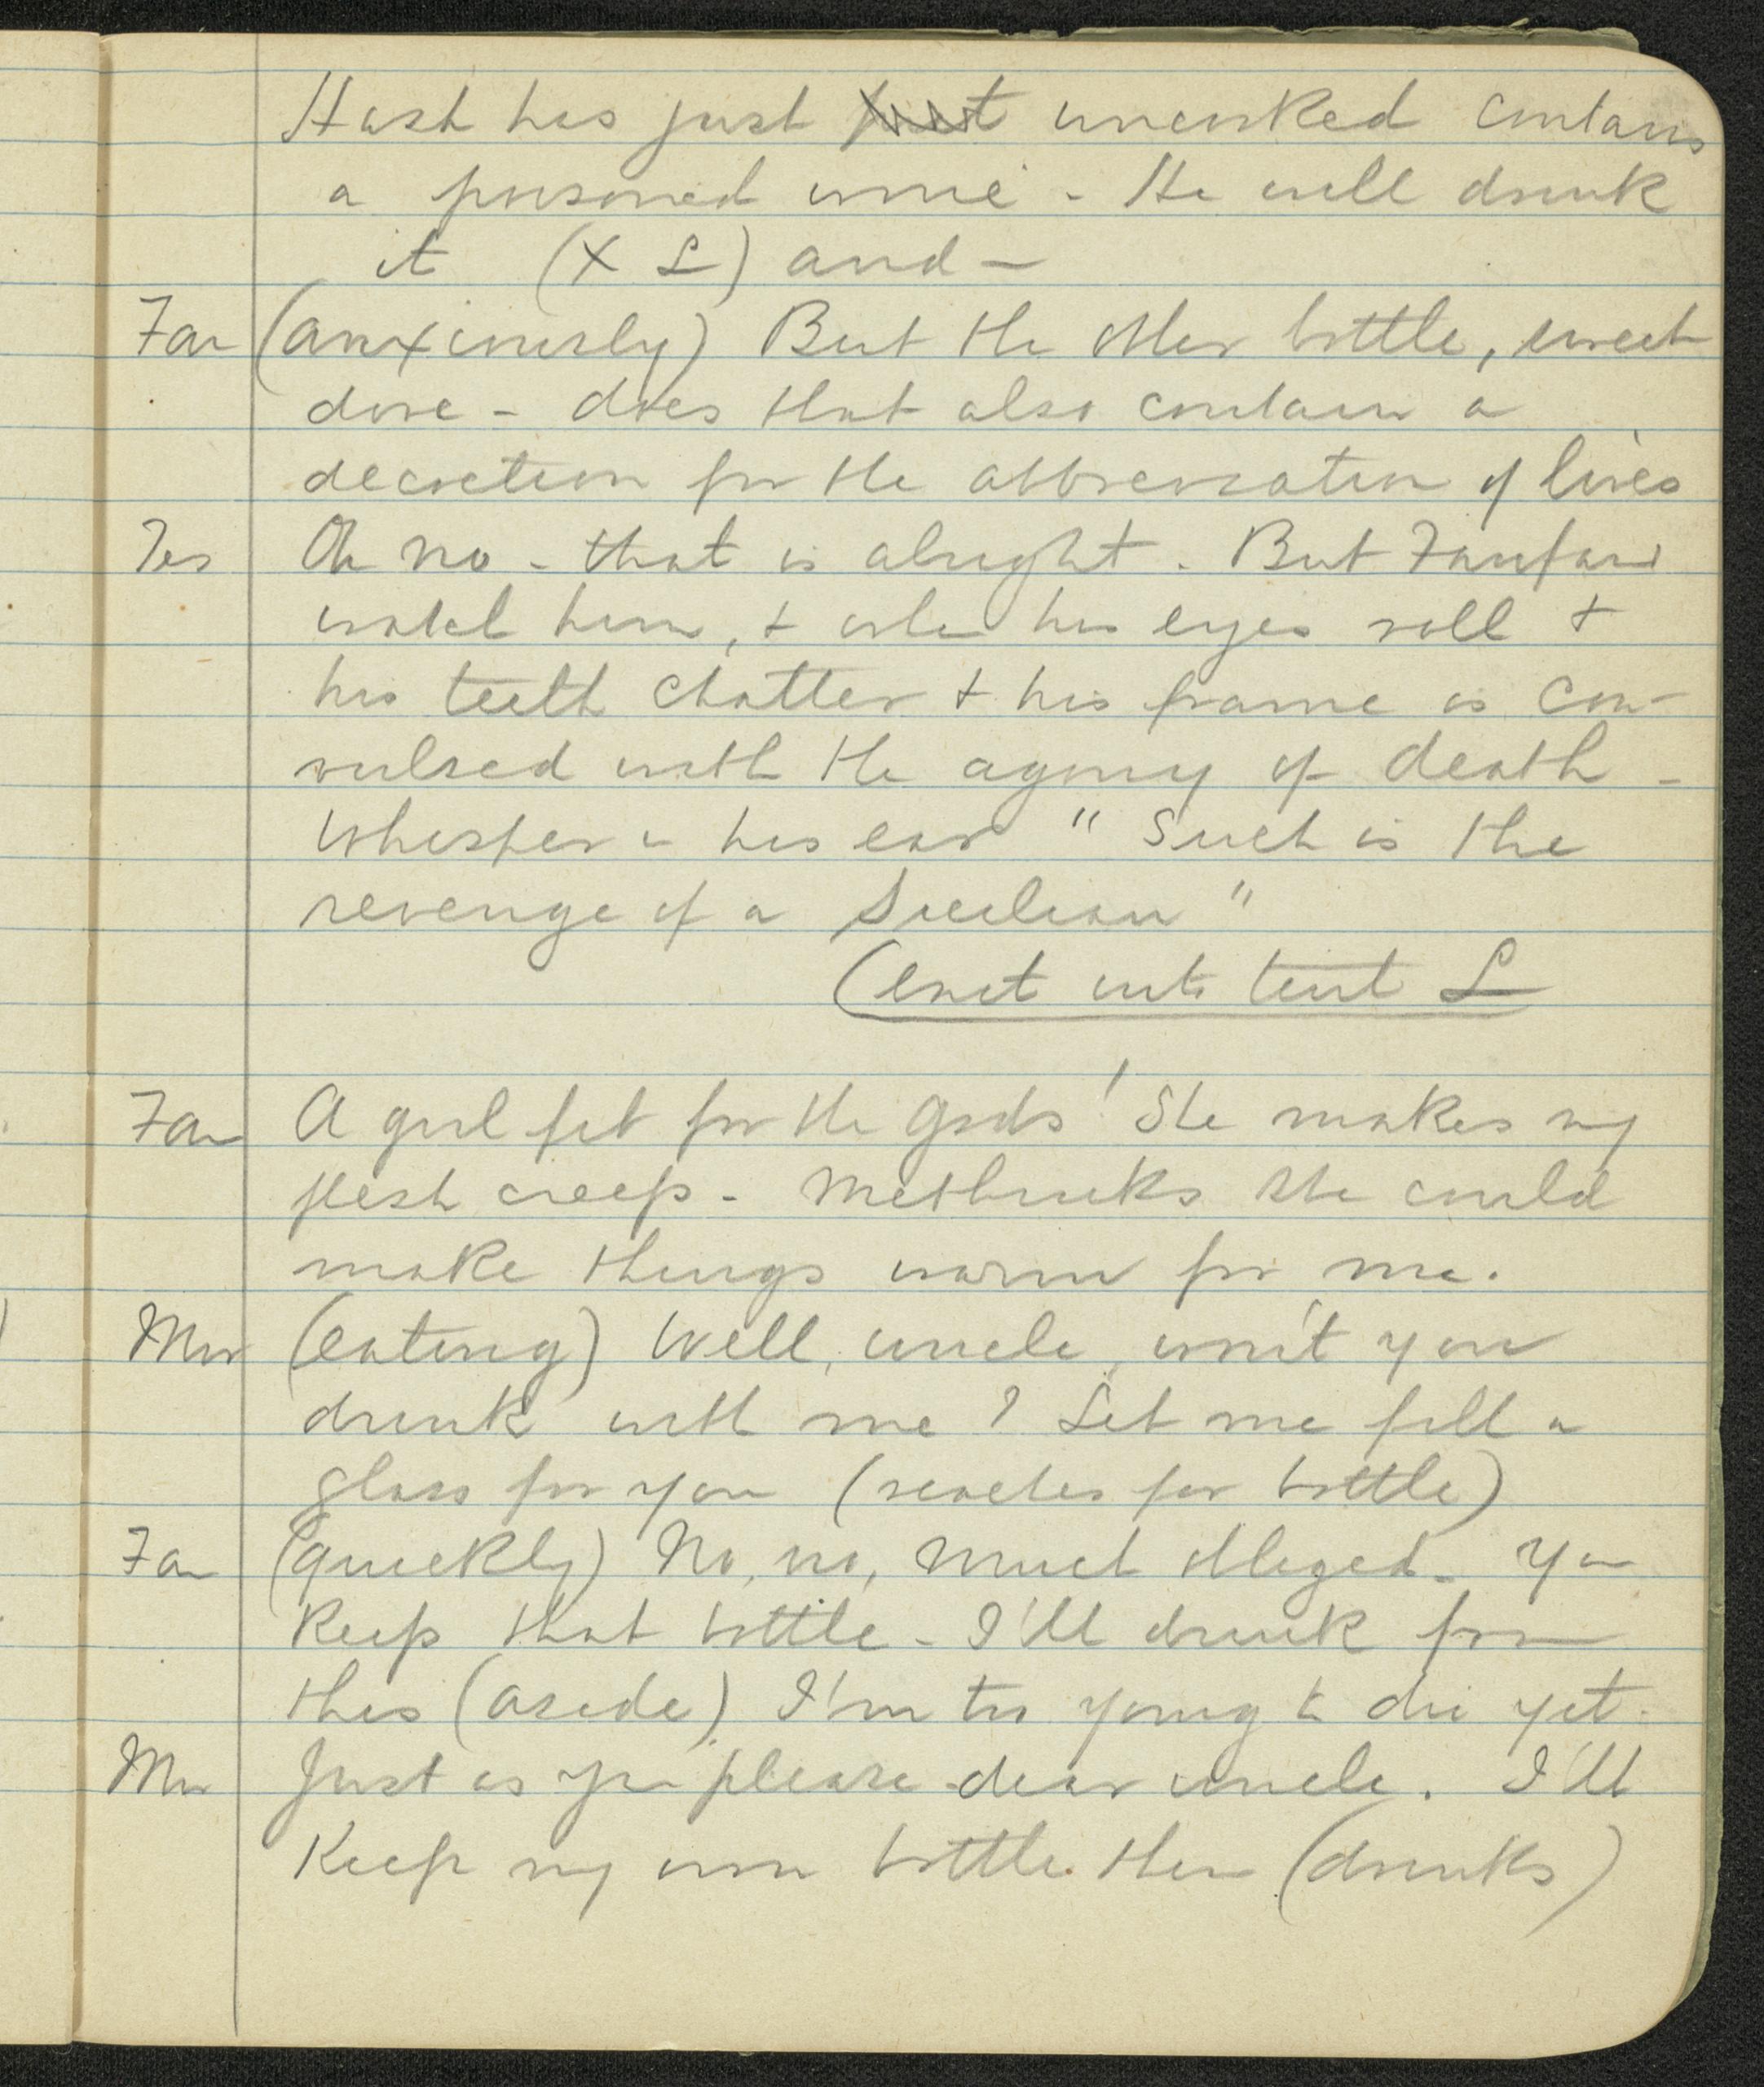 Hash has just just uncorked contains
a poisoned wine - He will drink
it (X L) and -
Fan (anxiously) But the other bottle, sweet
dove - does that also contain a
decoction for the abbreviation of lives
Tes Oh no - that is alright. But Fanfani
watch him, + when his eyes roll +
his teeth chatter + his frame is con-
vulsed with the agony of death -
Whisper in his ear "Such is the
revenge of a Sicilian"
(exit into tent L
Fan A girl fit for the Gods! She makes my
flesh creep - Methinks she could
make things warm for me.
Mur (eating) Well, uncle, won't you
drink with me? Let me fill a
glass for you (reaches for bottle)
Fan (quickly) No, no, much obliged - You
Keep that bottle - I'll drink from
this (aside) I'm too young to die yet.
Mur Just as you please dear uncle. I'll
Keep my own bottle then (drinks)